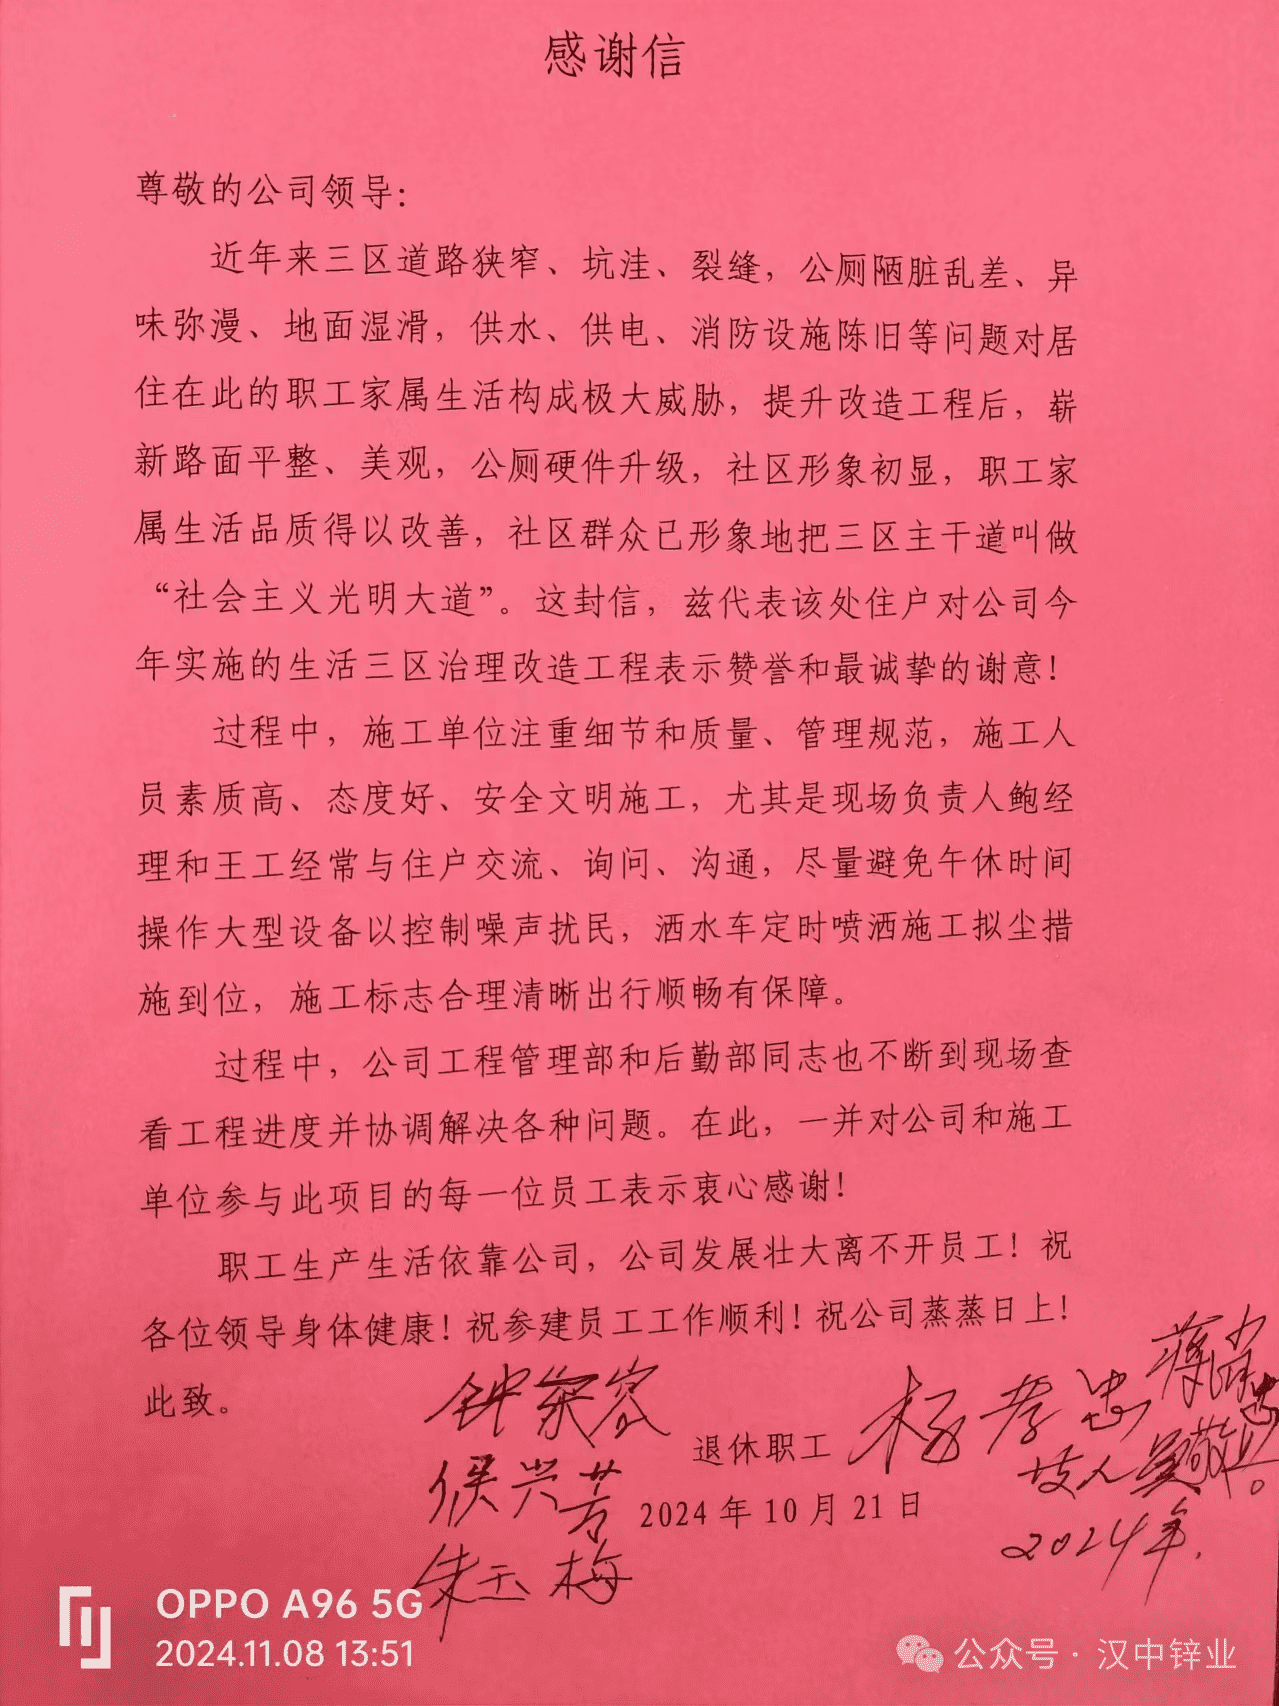 感谢信
尊敬的公司领导：
近年来三区道路狭窄、坑洼、裂缝，公厕陋脏乱差、异
味弥漫、地面湿滑，供水、供电、消防设施陈旧等问题对居
住在此的职工家属生活构成极大威胁，提升改造工程后，崭
新路面平整、美观，公厕硬件升级，社区形象初显，职工家
属生活品质得以改善，社区群众已形象地把三区主干道叫做
“社会主义光明大道”。这封信，兹代表该处住户对公司今
年实施的生活三区治理改造工程表示赞誉和最诚挚的谢意！
过程中，施工单位注重细节和质量、管理规范，施工人
员素质高、态度好、安全文明施工，尤其是现场负责人鲍经
理和王工经常与住户交流、询问、沟通，尽量避免午休时间
操作大型设备以控制噪声扰民，洒水车定时喷洒施工拟尘措
施到位，施工标志合理清晰出行顺畅有保障。
过程中，公司工程管理部和后勤部同志也不断到现场查
看工程进度并协调解决各种问题。在此，一并对公司和施工
单位参与此项目的每一位员工表示衷心感谢！
职工生产生活依靠公司，公司发展壮大离不开员工！祝
各位领导身体健康！祝参建员工工作顺利！祝公司蒸蒸日上！
此致。
退休职工 杨孝忠
侯兴芳
2024年10月21日
朱玉梅
2024年.
OPPO A96 5G
2024.11.08 13:51
公众号·汉中锌业